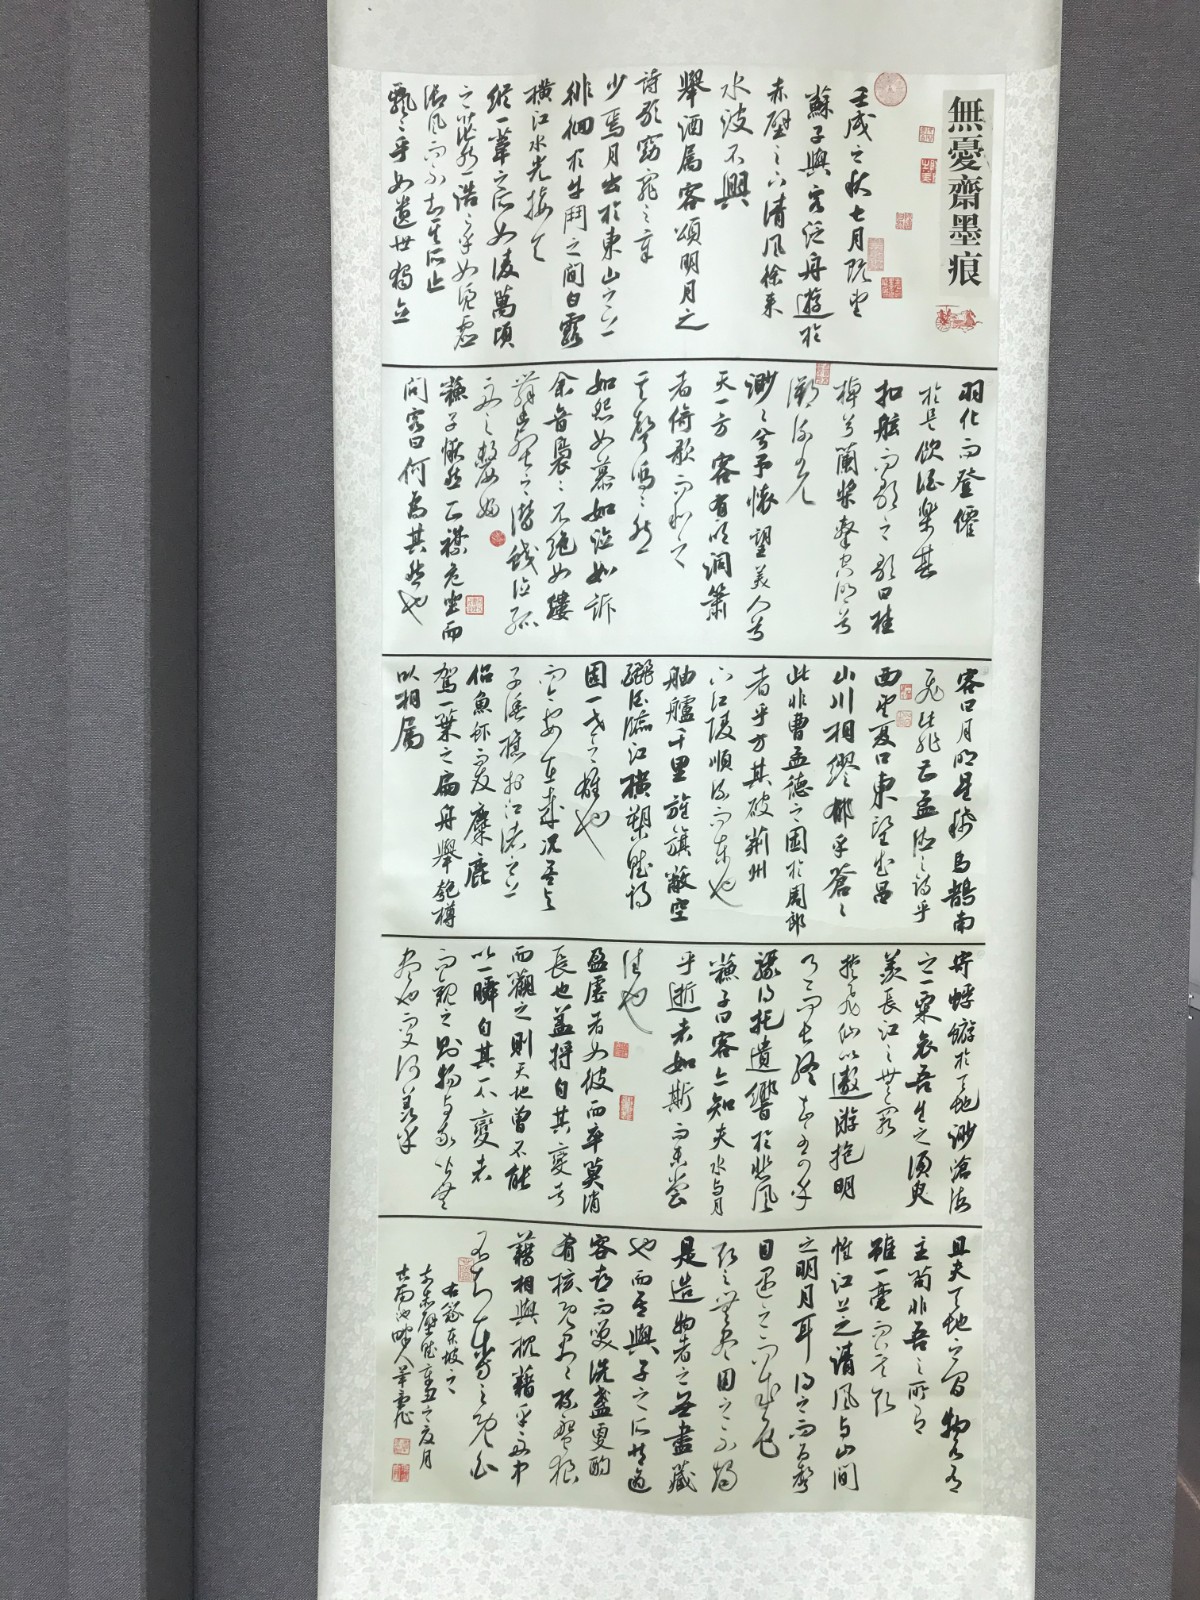 無憂齋墨痕
壬戌之秋七月既望
蘇子與客泛舟遊於
赤壁之下清風徐來
水波不興
舉酒属客頌明月之
詩歌窈窕之章
少焉月出於東山之上
徘徊於牛鬥之間白露
橫江水光接天
縱一葦之所如凌萬頃
之茫然浩浩乎如馮虛
御風而不知其所止
飄飄乎如遺世獨立
羽化而登僊
於是飲酒樂甚
扣舷而歌之歌曰桂
棹兮蘭槳擊空明兮
溯流光
渺渺兮予懷望美人兮
天一方客有吹洞簫
者倚歌而和之
其聲嗚嗚然
如怨如慕如泣如訴
余音裊裊不絕如縷
舞幽壑之潛蛟泣孤
舟之嫠婦
蘇子愀然正襟危坐而
問客曰何為其然也
客曰月明星稀烏鵲南
飛此非孟德之詩乎
西望夏口東望武昌
山川相繆郁乎蒼蒼
此非曹孟德之困於周郎
者乎方其破荊州
下江陵順流而東也
舳艫千里旌旗蔽空
釃酒臨江橫槊賦詩
固一世之雄也
而今安在哉況吾與
子漁樵於江渚之上
侶魚蝦而友麋鹿
駕一葉之扁舟舉匏樽
以相屬
寄蜉蝣於天地渺滄海
之一粟哀吾生之須臾
羨長江之無窮
挾飛仙以遨游抱明
月而長終知不可乎
驟得托遺響於悲風
蘇子曰客亦知夫水與月
乎逝者如斯而未嘗
往也
盈虛者如彼而卒莫消
長也蓋將自其變者
而觀之則天地曾不能
以一瞬自其不變者
而觀之則物與我皆無
盡也而又何羨乎
且夫天地之間物各有
主苟非吾之所有
雖一毫而莫取
惟江上之清風與山間
之明月耳得之而為聲
目遇之而成色
取之無盡用之不竭
是造物者之無盡藏
也而吾與子之所共適
客喜而笑洗盞更酌
肴核既盡杯盤狼
藉相與枕藉乎舟中
不知東方之既白
右錄東坡之
前赤壁賦